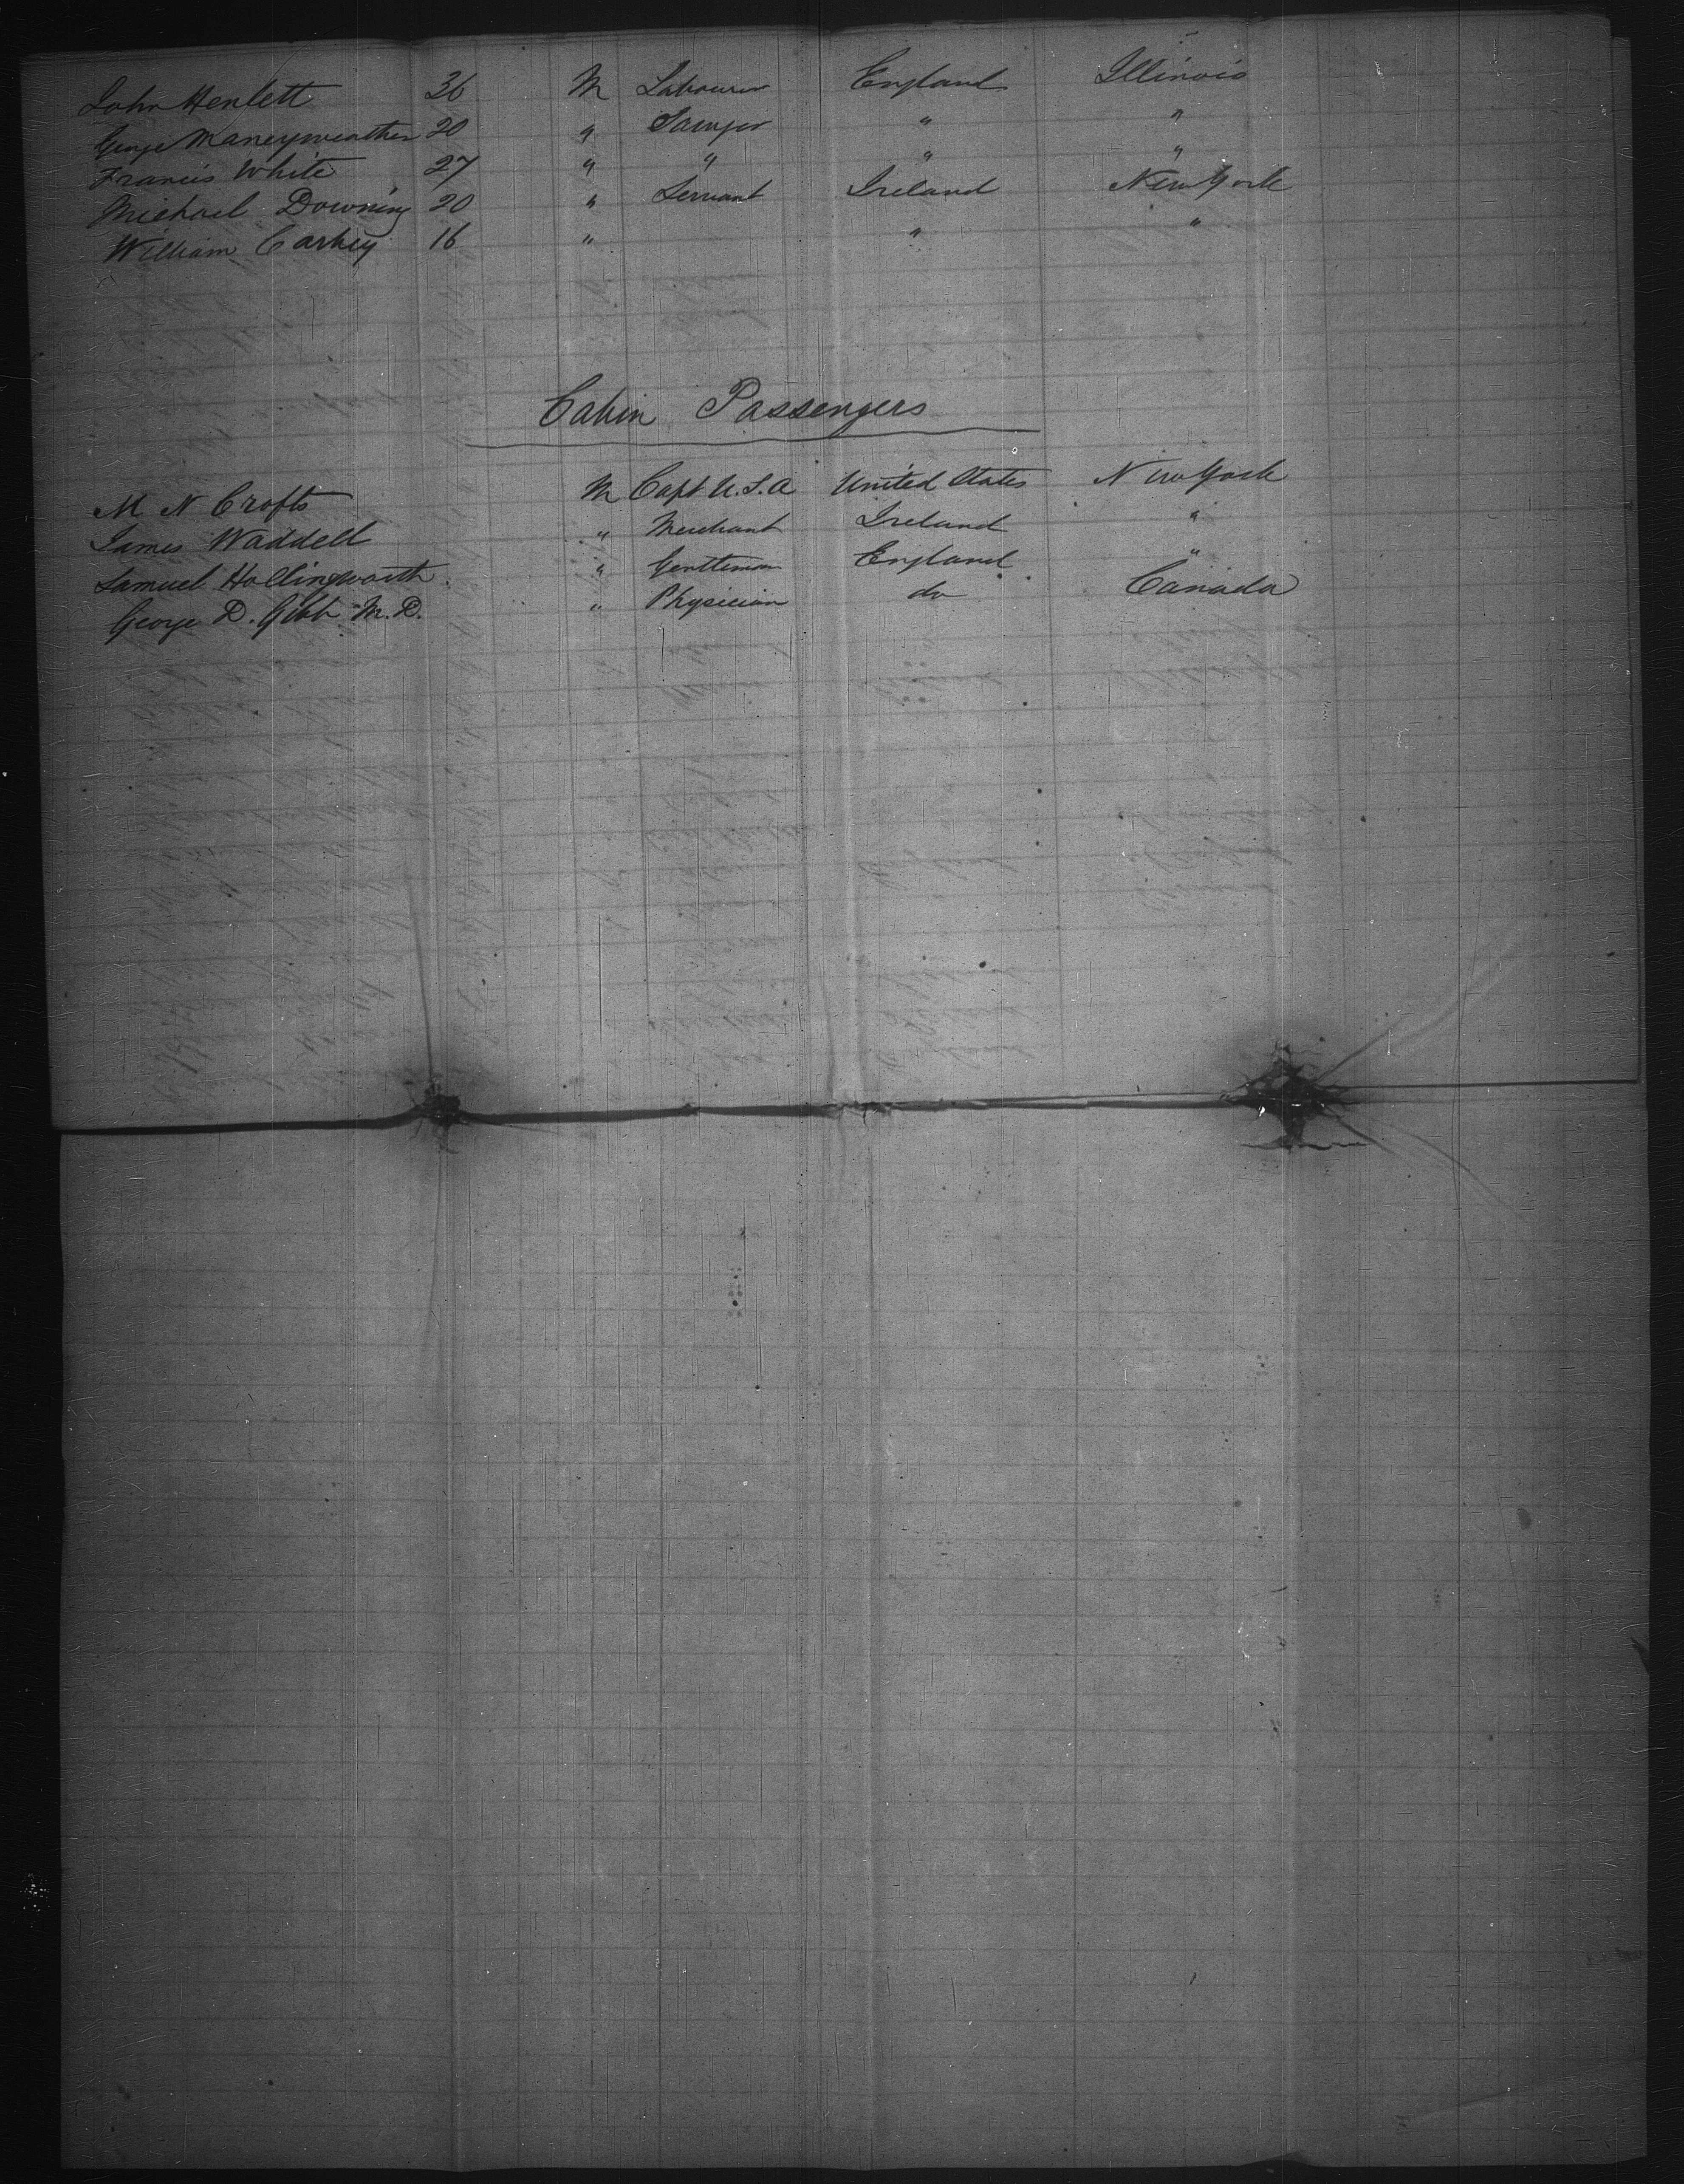 John Henlett 36 M Labourer England Illinois
George Maneyweather 20 " Sawyer " "
Francis White 27 " " " "
Michael Downing 20 " Servant Ireland New York
William Carkey 16 " " "
Cabin Passengers
M N Crofts M Capt U.S.A United States New York
James Waddell " Merchant Ireland "
Samuel Hollingworth " Gentleman England "
George D. Gibb M.D. " Physician do Canada